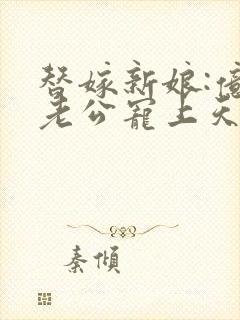 替嫁新娘:億
老公寵上天
秦傾